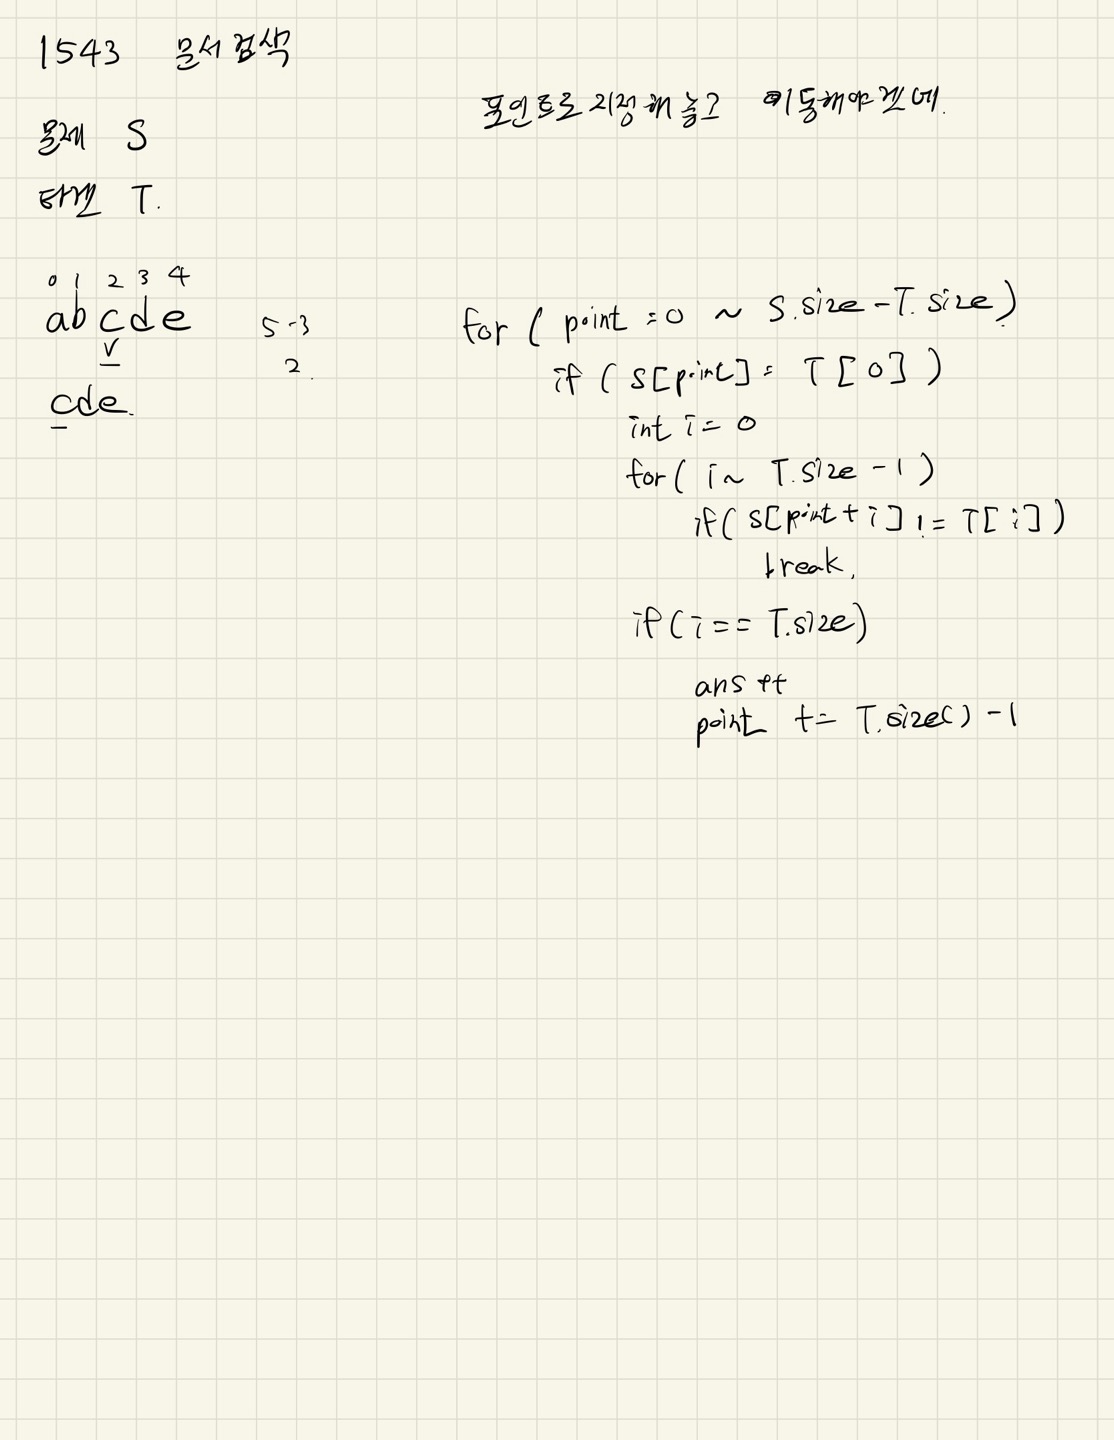 1543 문서 검색
포인트로 지정해 놓고 이동해야겠네.
문제 S
타겟 T.
0 1 2 3 4
abcde
v
cde.
5-3
2.
for ( point = 0 ~ S.size - T.size )
if ( S[point] = T[0] )
int i = 0
for ( i ~ T.size - 1 )
if ( S[point + i] != T[i] )
break.
if ( i == T.size )
ans ++
point += T.size() - 1